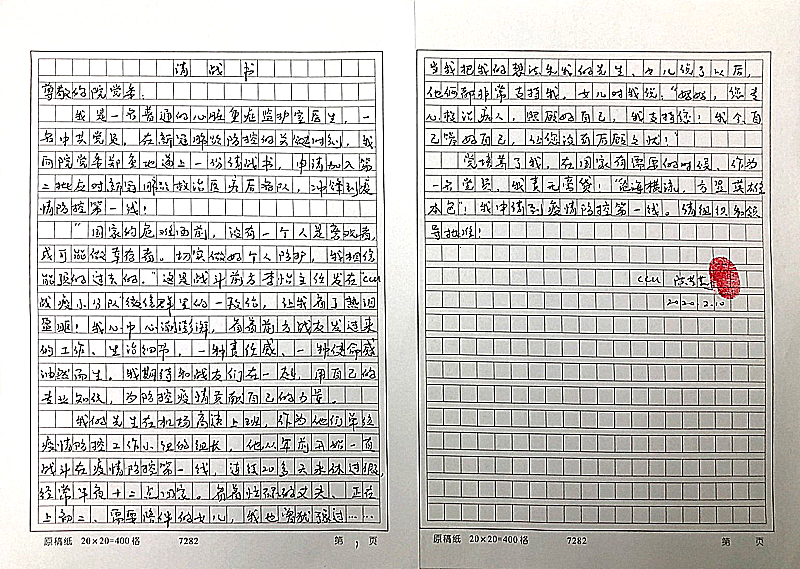 请战书
尊敬的院党委:
我是一名普通的心脏重症监护室医生,一
名中共党员,在新冠肺炎防控的关键时刻,我
向院党委郑重地递上一份请战书,申请加入第
二批应对新冠肺炎救治医务后备队,冲锋到疫
情防控第一线!
"国家的危难面前,没有一个人是旁观者,
或可能做幸存者。切实做好个人防护,我相信
能强的过去的。"这是战斗前方李怡主任发在"CCU
战疫小分队"微信群里的一段话,让我有了热泪
盈眶!我心中心潮澎湃,看着前方战友发过来
的工作、生活细节,一种责任感、一种使命感
油然而生。我期待和战友们在一起,用自己的
专业知识,为防控疫情贡献自己的力量。
我的先生在机场高速上班,作为他们单位
疫情防控工作小组的组长,他从年前开始一直
战斗在疫情防控第一线,连续20多天未休过假,
经常半夜十二点回家。看着忙碌的丈夫、正在
上初二、需要陪伴的女儿,我也犹豫过……
原稿纸 20×20=400格 7282 第 1 页
当我把我的想法和我的先生、女儿说了以后,
他们都非常支持我,女儿对我说:"妈妈,您专
心救治病人,照顾好自己,我支持您!我会自
己管好自己,让您没有后顾之忧!"
党培养了我,在国家有需要的时候,作为
一名党员,我责无旁贷!"沧海横流,方显英雄
本色"!我申请到疫情防控第一线。请组织和领
导批准!
CCU
2020.2.10
原稿纸 20×20=400格 7282 第 页